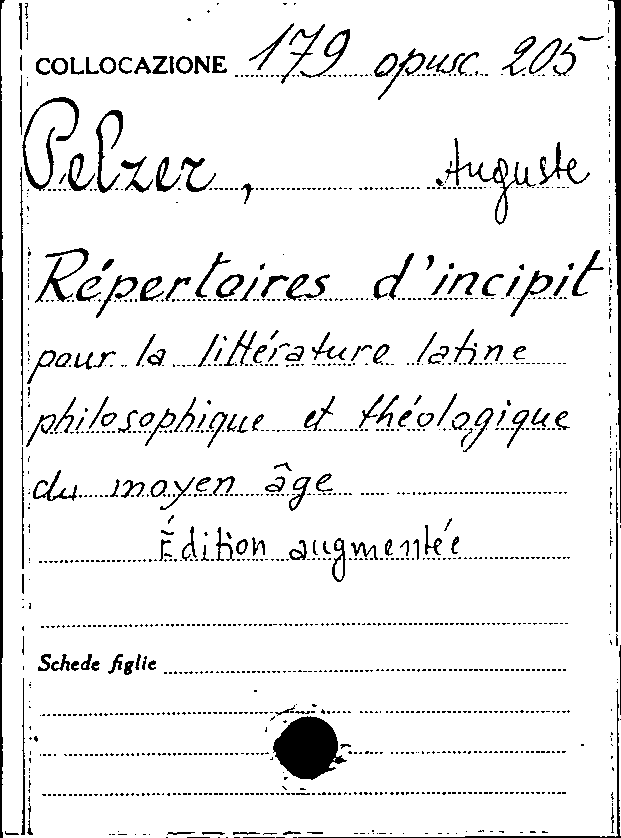 COLLOCAZIONE 179 opusc. 205
Pelzer, Auguste
Répertoires d'incipit
pour la littérature latine
philosophique et théologique
du moyen âge
Édition augmentée
Schede figlie